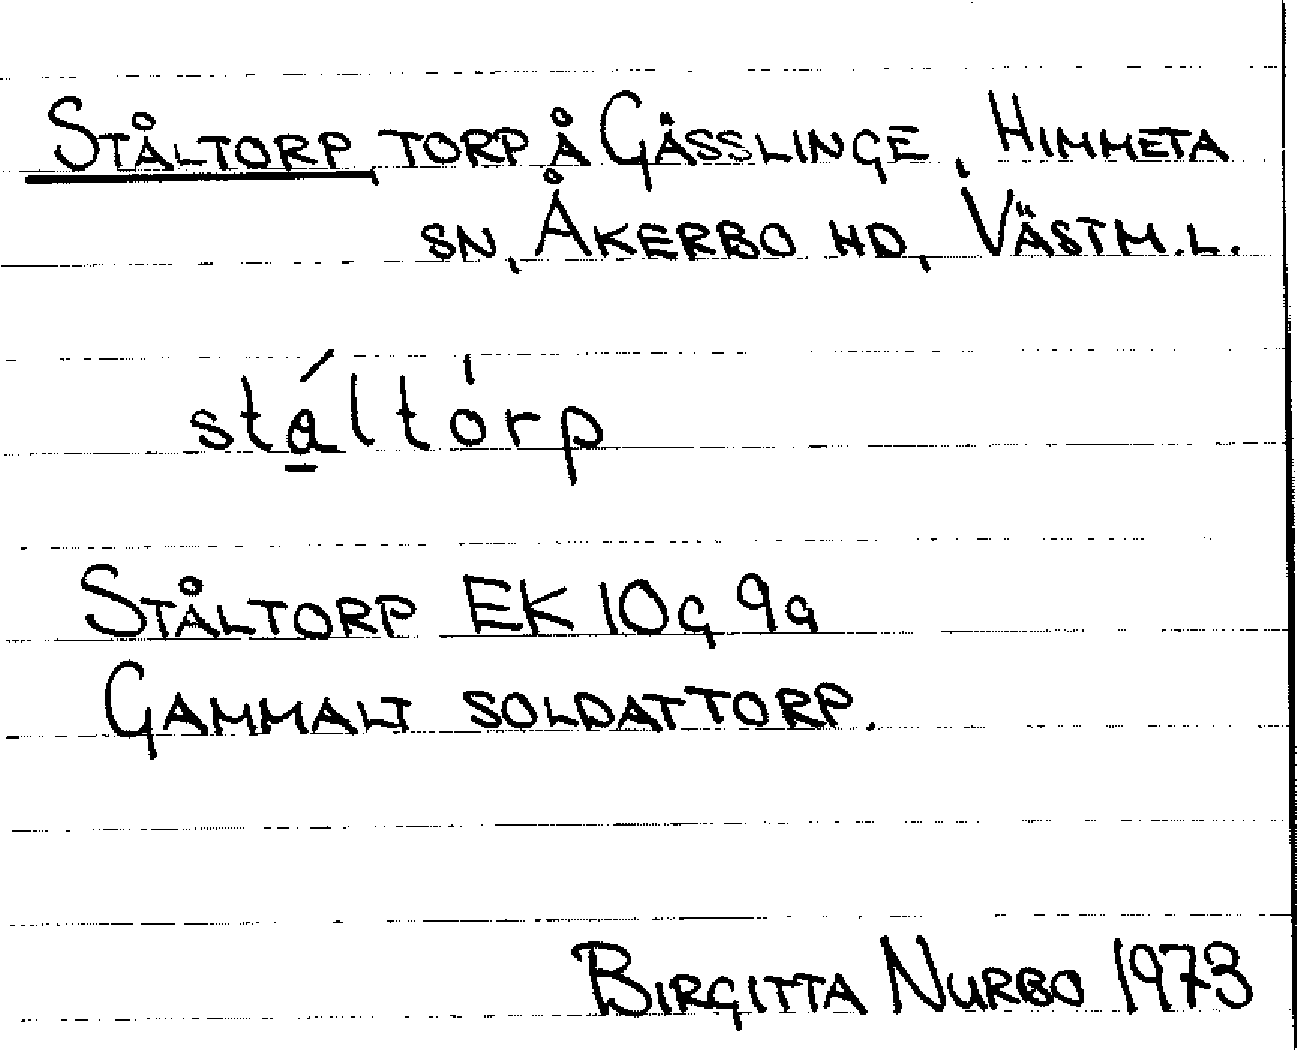 STÅLTORP, TORP Å GÄSSLINGE, HIMMETA
SN, ÅKERBO HD, VÄSTM.L.
stá̱ltòrp
STÅLTORP EK 10G 9a
GAMMALT SOLDATTORP.
BIRGITTA NURBO 1973